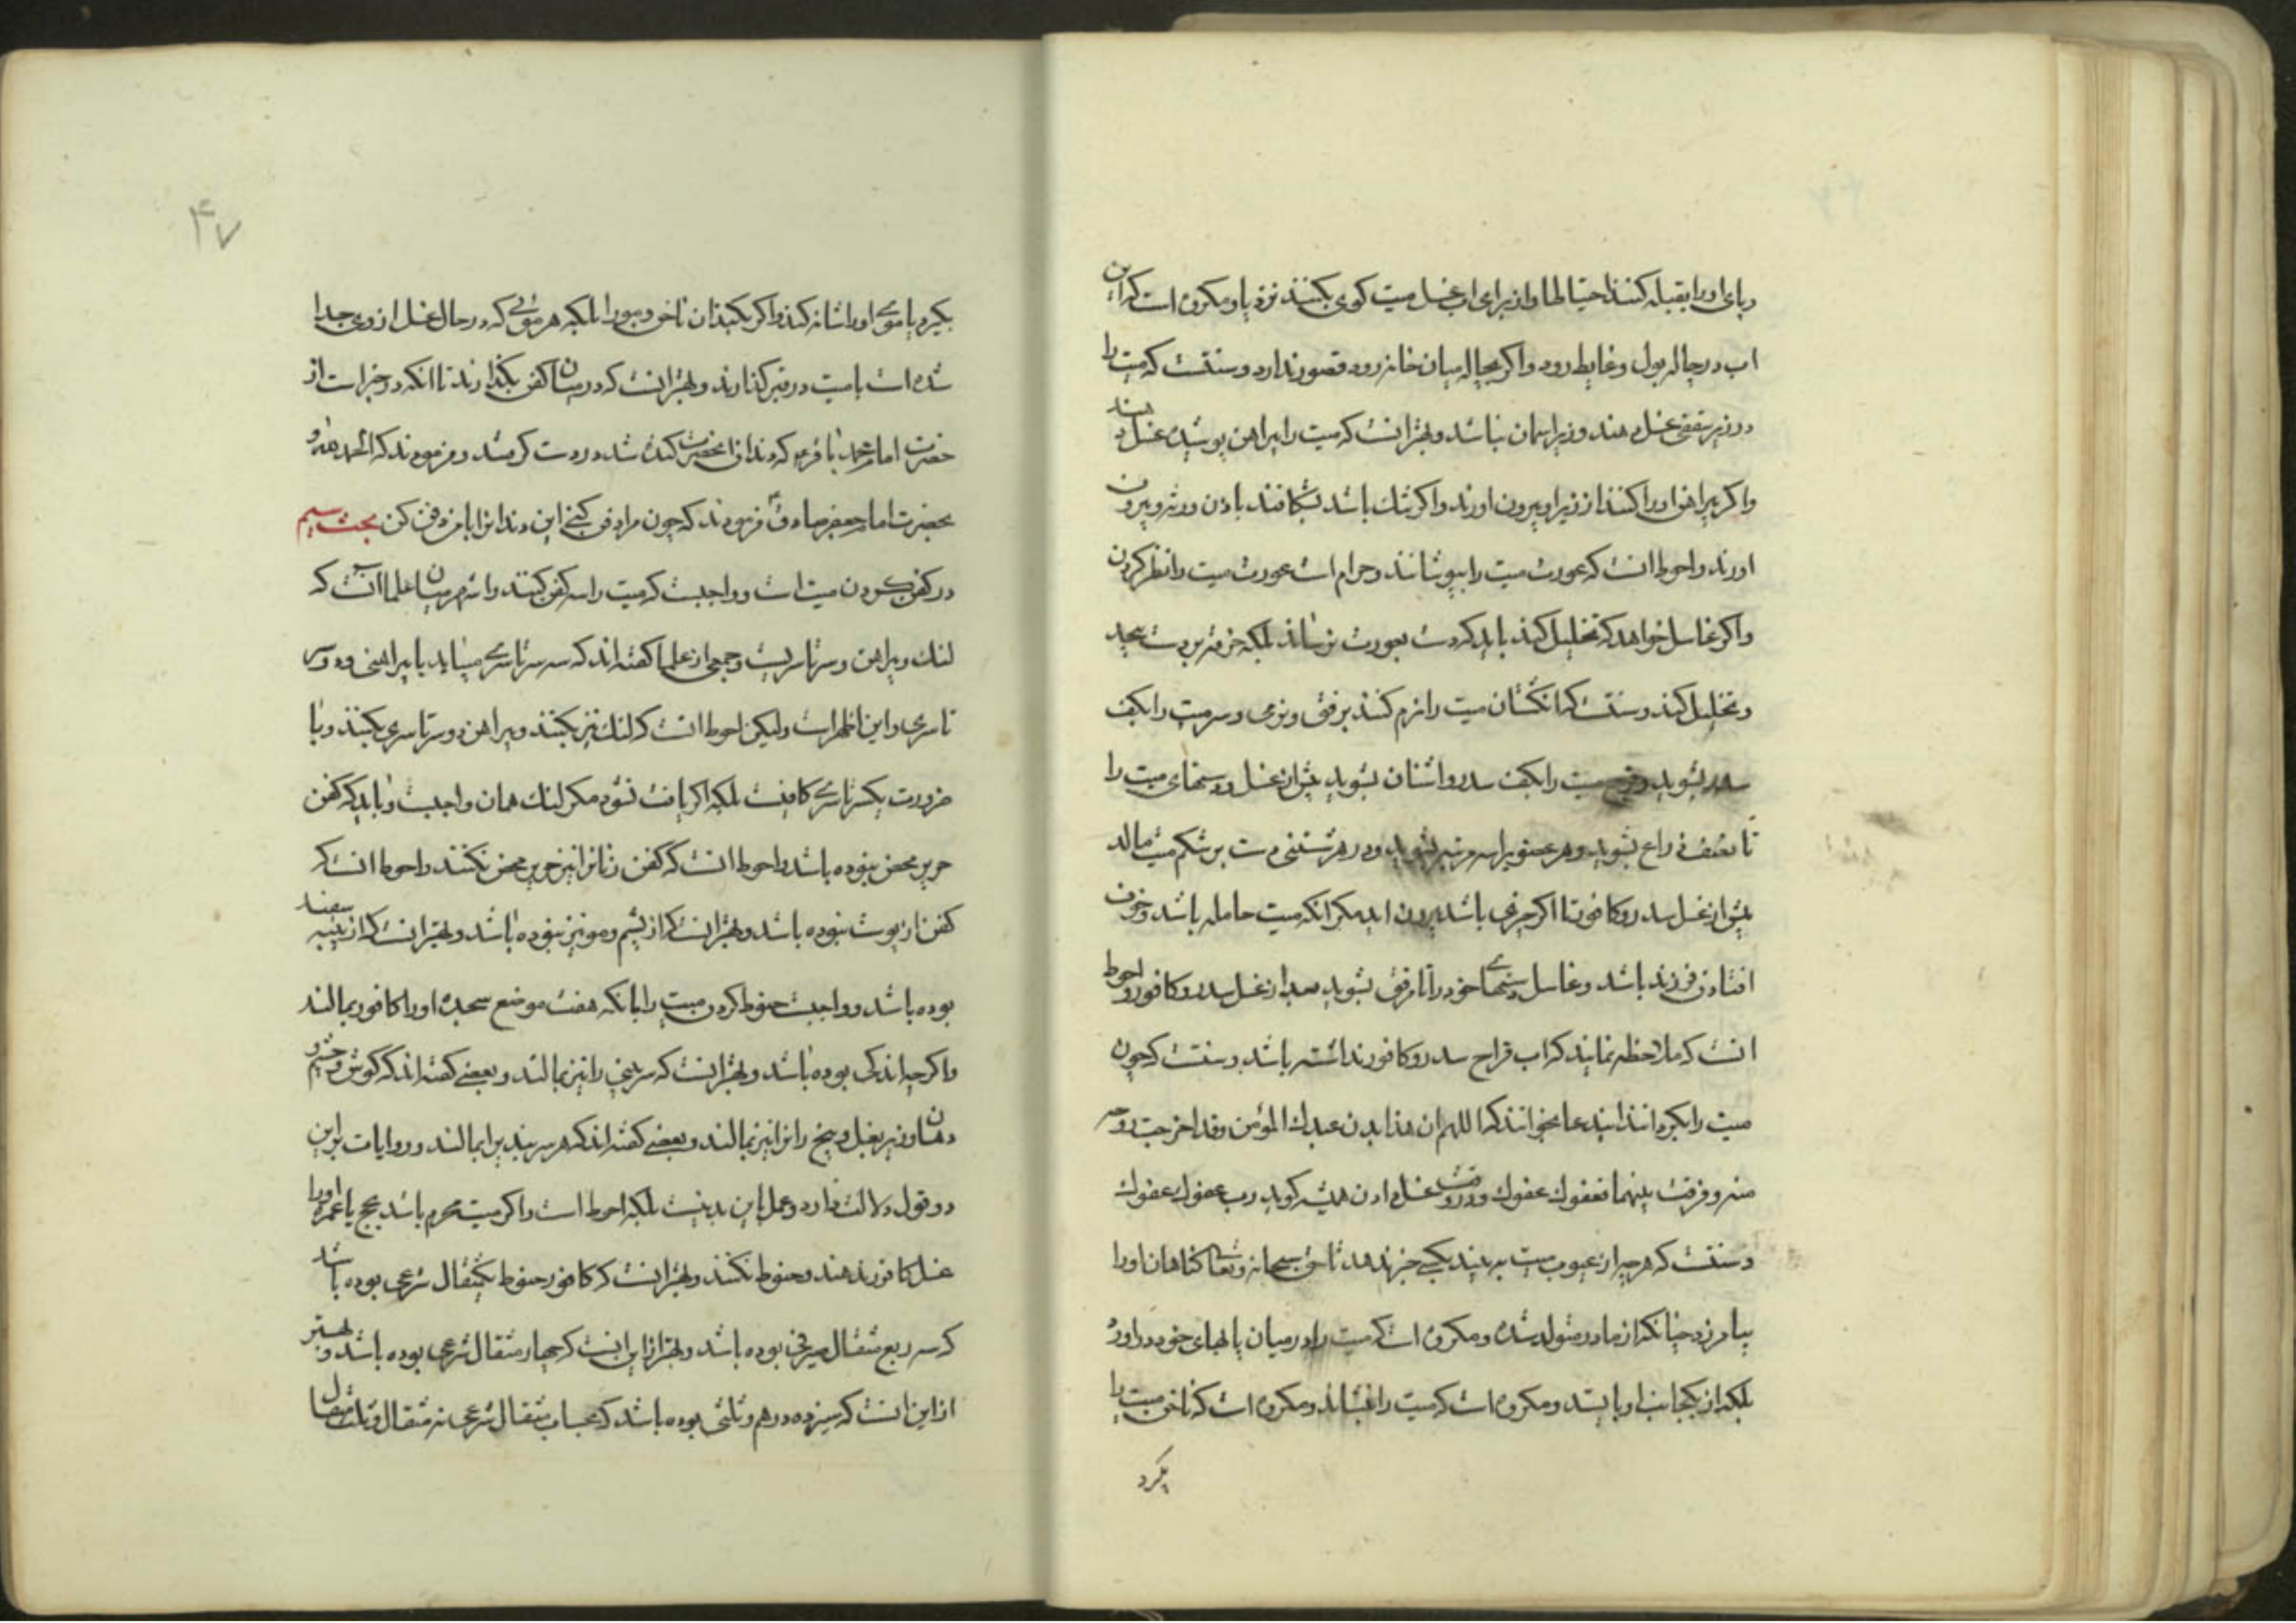 وپای او را بقبله کنند احتیاطا و از برای اب غسل میت کوی بکنند نزد پا و مکروه است که این
اب در چاله بول و غایط رود و اکر بچاله میان خانه رود قصور ندارد و سنتست که میت را
در زیر سقفی غسل دهند و زیر اسمان نباشد و بهتر انست که میت را پیراهن پوشیده غسل دهند
و اکر پیراهن او را کنند از زیر او بیرون اورند و اکر تنک باشد بشکافند باذن ورثه و بیرون
اورند و احوط انست که عورت میت را بپوشانند و حرام است عورت میت را نظر کردن
و اکر غاسل خواهد که تخلیل کند باید که دست بعورت نرساند بلکه خرقه بر دست پیچد
و تخلیل کند و سنتست که انکشتان میت را نرم کنند برفق و نرمی و سر میت را بکف
سدر بشوید و فرج میت را بکف سدر و اشنان بشوید پیش از غسل و دستهای میت را
تا نصف ذراع بشوید و هر عضویرا سه مرتبه بشوید و در هر شستنی دست بر شکم میت مالد
پیش از غسل سدر و کافور تا اکر چیزی باشد بیرون اید مکر انکه میت حامله باشد و خوف
افتادن فرزند باشد و غاسل دستهای خود را تا مرفق بشوید بعد از غسل سدر و کافور و احوط
انست که ملاحظه نمایند که اب قراح سدر و کافور نداشته باشد و سنتست که چون
میت را بکردانند ایند عا بخوانند که اللهم ان هذا بدن عبدك المؤمن وقد اخرجت روحه
منه وفرقت بینهما فعفوك عفوك و در وقت غسل دادن همیشه کوید رب عفوك عفوك
و سنتست که هر چه از عیوب میت به بیند بکسی خبر ندهد تا حق سبحانه و تعالی کناهان او را
بیامرزد چنانکه از مادر متولد شده و مکروه است که میت را در میان پاهای خود در اورد
بلکه از یکجانب او بایستد و مکروه است که میت را بنشاند و مکروه است که ناخن میت را
بکیرد
۴۷
بکیرد یا موی او را شانه کند و اکر بکیرند ان ناخن و مو را بلکه هر موئی که در حال غسل از وی جدا
شده است با میت در قبر کذارند و بهتر انست که در میان کفن بکذارند تا انکه در خبر است از
حضرت امام محمد باقر ع که دندان انحضرت کنده شد در دست کرفتند و فرمودند که الحمد لله و
بحضرت امام جعفر صادق ع فرمودند که چون مرا دفن کنی این دندانرا با من دفن کن بحث سیم
در کفن کردن میت است و واجبست که میت را سه کفن کنند و اشهر میان علما انست که
لنك و پیراهن و سرتاسریست و جمعی از علما کفته اند که سه سرتاسری میباید یا پیراهنی و دو سر
تاسری و این اظهر است ولیکن احوط انست که لنك نیز بکنند و پیراهن و دو سرتاسری بکنند و با
ضرورت یکسرتاسری کافیست بلکه اکر یافت نشود مکر لنك همان واجبست و باید که کفن
حریر محض نبوده باشد و احوط انست که کفن زنانرا نیز حریر محض نکنند و احوط انست که
کفن از پوست نبوده باشد و بهتر انست که از پشم و مو نیز نبوده باشد و بهتر انست که از پنبه سفید
بوده باشد و واجبست حنوط کردن میت را بانکه هفت موضع سجده او را کافور بمالند
و اکر چه اندکی بوده باشد و بهتر انست که سر بینی را نیز بمالند و بعضی کفته اند که کوش و چشم و
دهان و زیر بغل و بیخ رانرا نیز بمالند و بعضی کفته اند که هر سر بندیرا بمالند و روایات بر این
دو قول دلالت دارد و عمل باین بد نیست بلکه احوط است و اکر میت محرم باشد بحج یا عمره او را
غسل کافور ندهند و حنوط نکنند و بهتر انست که کافور حنوط یکمثقال شرعی بوده باشد
که سه ربع مثقال صیرفی بوده باشد و بهتر از این انست که چهار مثقال شرعی بوده باشد و بهتر
از این انست که سیزده درهم و ثلثی بوده باشد که بحساب مثقال شرعی نه مثقال و ثلث مثقال